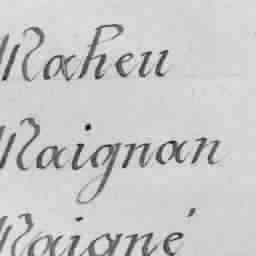 Maheu
Maignan
Maigné